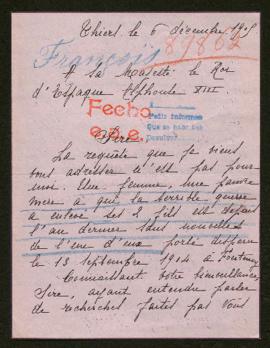 Thiers le 6 décembre 1915
Français
89862
A sa Majesté le Roi
d'Espagne Alphonse XIII
Fecho
Sire,
La requête que je viens
vous adresser n'est pas pour
moi. Une femme, une pauvre
mère a qui la terrible guerre
a enlevé ses 2 fils est depuis
l'an dernier sans nouvelles
de l'un d'eux porté disparu
le 13 septembre 1914 à
Connaissant votre bienveillance,
Sire, ayant entendu parler
de recherches faites par vous